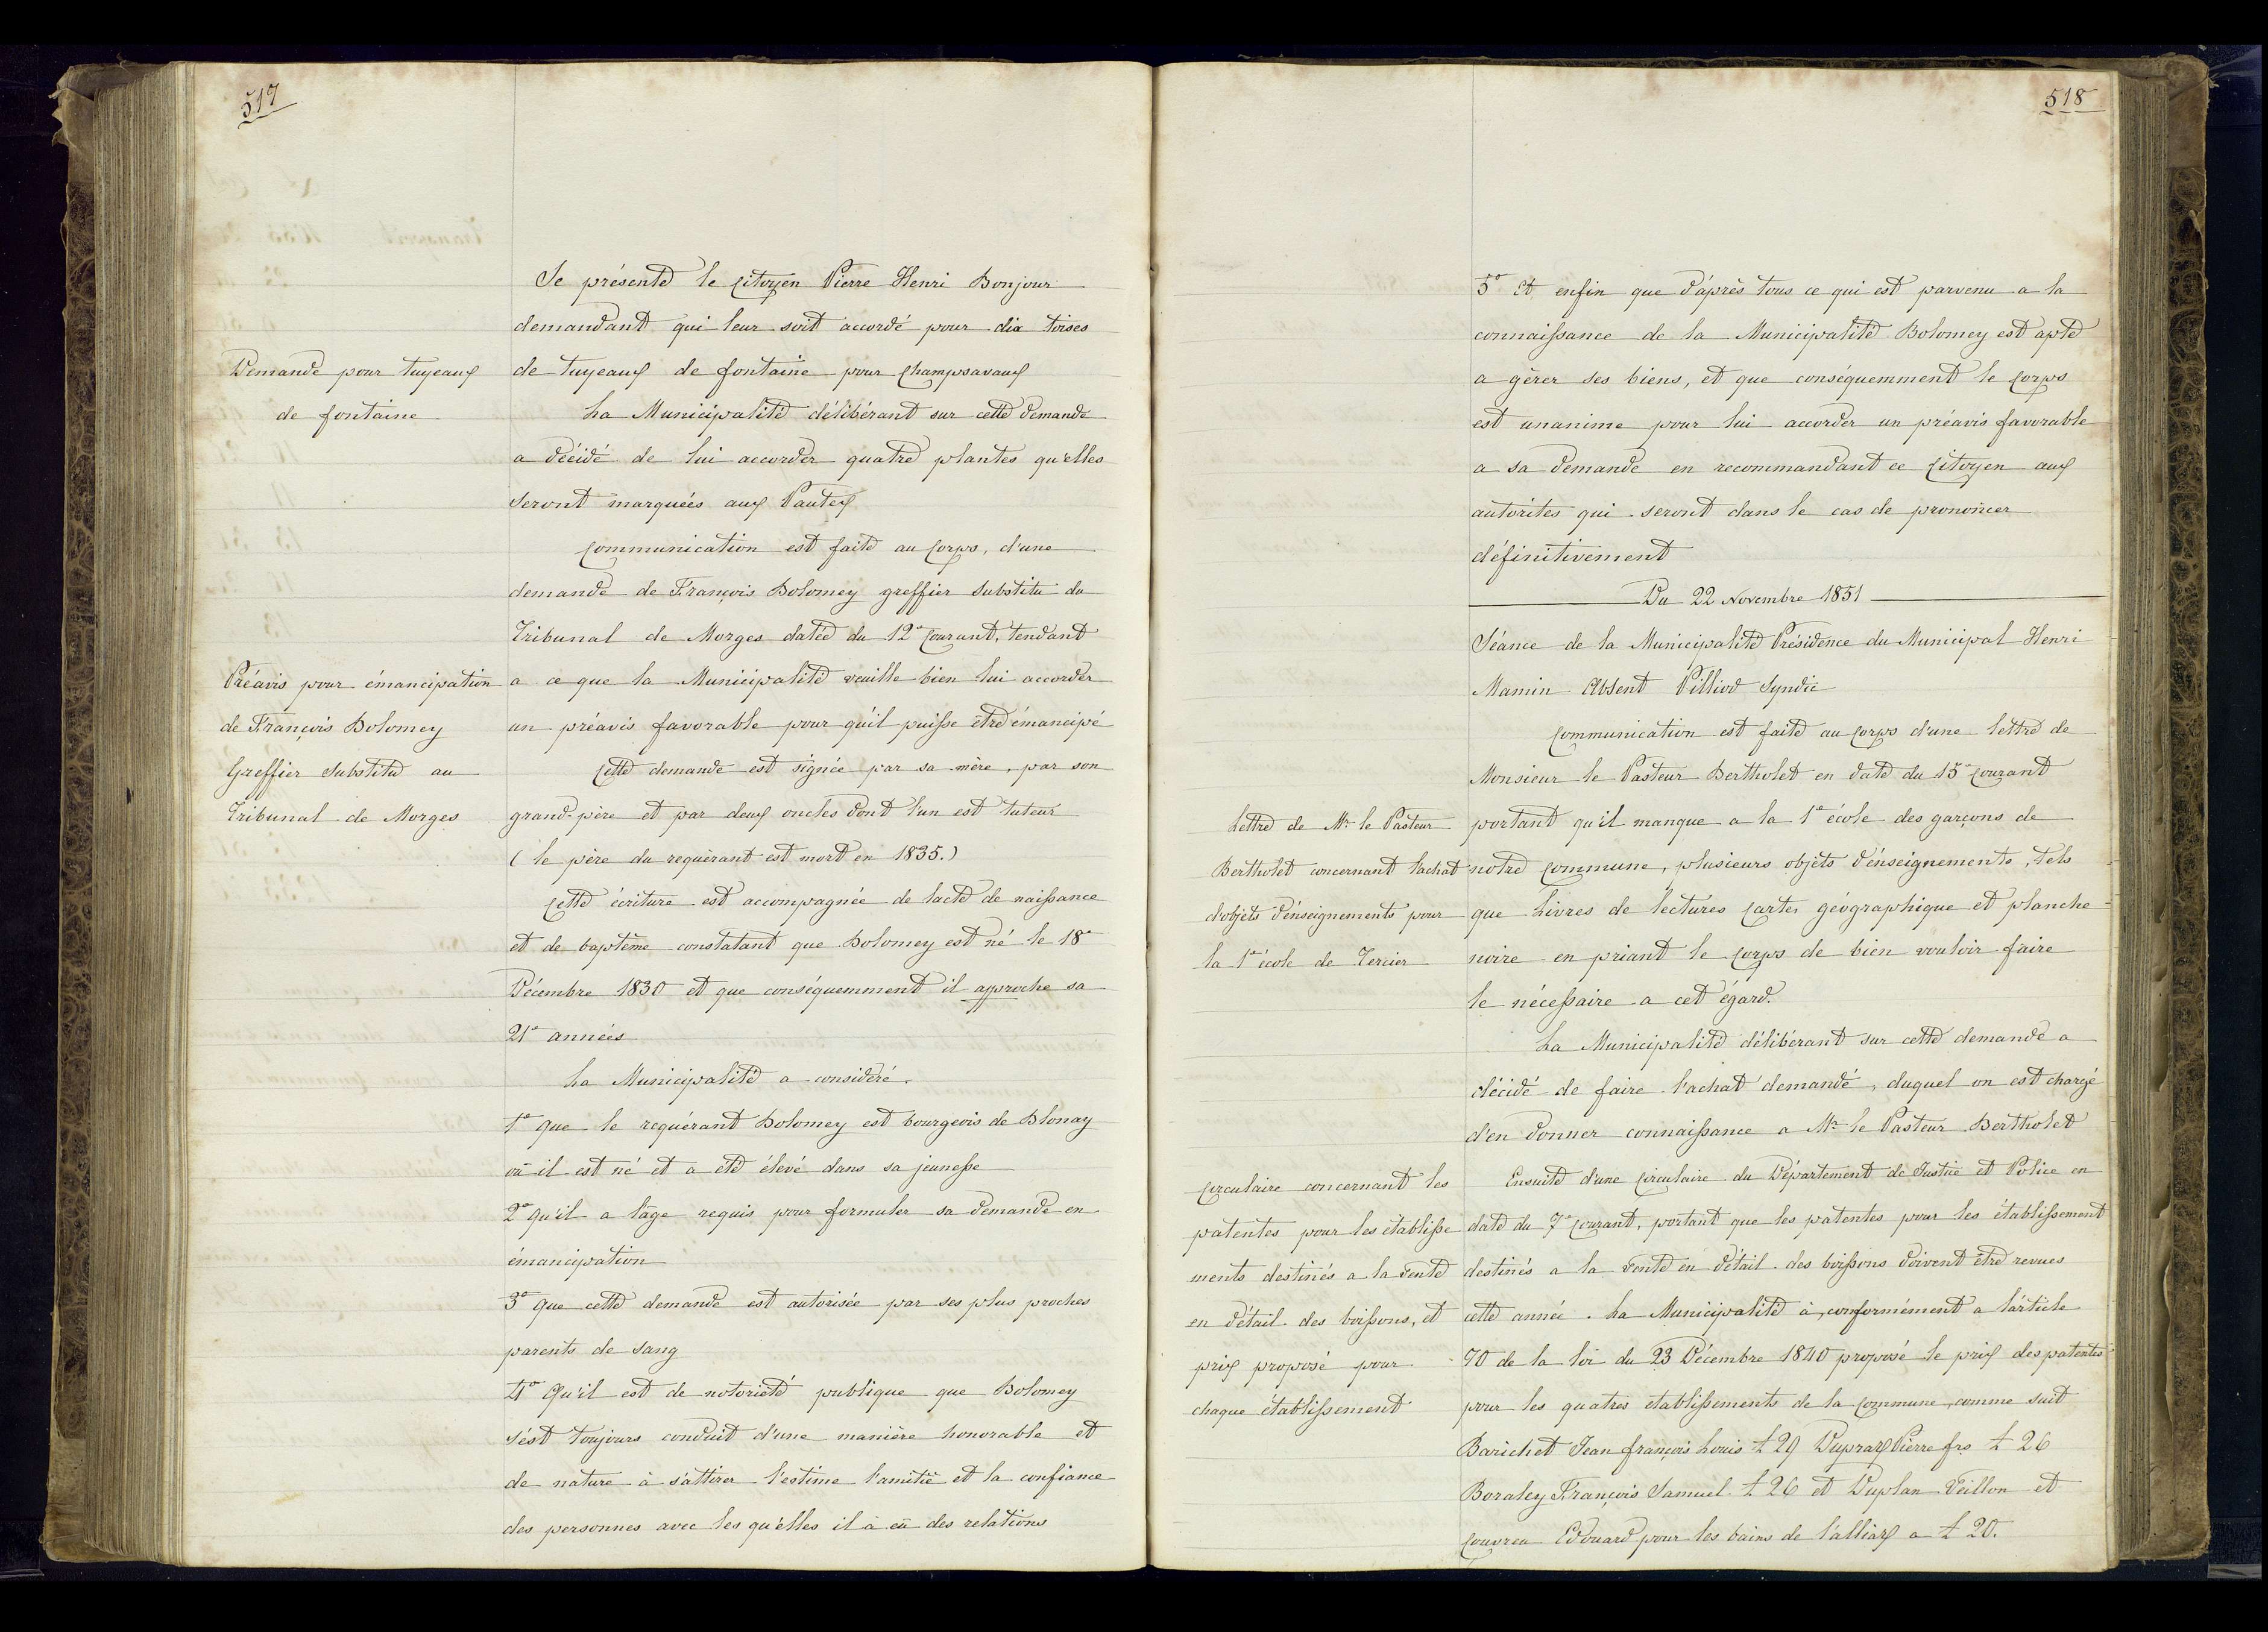 517
Se présente le Citoyen Pierre Henri Bonjour
demandant qui leur soit accordé pour dix toises
de tuyeaux de fontaine pour Champsavaux
La Municipalité délibérant sur cette demande
a décidé de lui accorder quatre plantes qu'elles
seront marquées aux Pautex
Communication est faite au Corps, d'une
demande de François Bolomey greffier substitu du
Tribunal de Morges datée du 12e Courant, tendant
a ce que la Municipalité veuille bien lui accorder
un préavis favorable pour qu'il puisse etre émancipé
Cette demande est signée par sa mère, par son
grand-père et par deux oncles dont l'un est tuteur
( le père du requérant est mort en 1835.)
Cette écriture est accompagnée de lacte de naissance
et de baptême constatant que Bolomey est né le 18e
Décembre 1830 et que conséquemment il approche sa
21e années
La Municipalité a consideré.
1o que le requérant Bolomey est bourgeois de Blonay
où il est né et a été élevé dans sa jeunesse
2o qu'il a l'âge requis pour formuler sa demande en
émancipation
3o que cette demande est autorisée par ses plus proches
parents de sang
4o Qu'il est de notorieté publique que Bolomey
s'ést toujours conduit d'une manière honorable et
de nature à s'attirer l'estime l'amitié et la confiance
des personnes avec les qu'elles il à eû des relations
Demande pour tuyeaux
de fontaine
Préavis pour émancipation
de François Bolomey
Greffier Substitu au
Tribunal de Morges
518
5o Et enfin que d'après tous ce qui est parvenu a la
connaissance de la Municipalité Bolomey est apte
a gèrer ses biens, et que conséquemment le Corps
est unanime pour lui accorder un préavis favorable
a sa demande en recommandant ce Citoyen aux
autorites qui seront dans le cas de prononcer
définitivement
Du 22 Novembre 1851
Séance de la Municipalité Présidence du Municipal Henri
Mamin Absent Pilliod Syndic
Communication est faite au Corps d'une lettre de
Monsieur le Pasteur Bertholet en date du 15e Courant
portant qu'il manque a la 1e école des garçons de
notre Commune, plusieurs objets d'énseignements, tels
que Livres de lectures Cartes géographique et planche
noire en priant le Corps de bien vouloir faire
le nécessaire a cet égard.
La Municipalité délibérant sur cette demande a
décidé de faire l'achat demandé, duquel on est chargé
d'en donner connaissance a Mr le Pasteur Bertholet
Ensuite d'une Circulaire du Département de Justice et Police en
date du 7e Courant, portant que les patentes pour les établissement
destinés a la vente en détail des boissons doivent être revues
cette année. La Municipalité à, conformément a l'árticle
70 de la loi du 23 Décembre 1840 proposé le prix des patentes
pour les quatres etablissements de la Commune, comme suit
Barichet Jean françois Louis £ 29 Dupraz Pierre frs £ 26
Boraley François Samuel £ 26 et Duplan Veillon et
Couvreu Edouard pour les bains de l'alliaz a £ 20.
Lettre de Mr le Pasteur
Bertholet concernant l'achat
d'objets d'énseignements pour
la 1e école de Tercier
Circulaire concernant les
patentes pour les établisse
ments destinés a la vente
en détail des boissons, et
prix proposé pour
chaque établissement